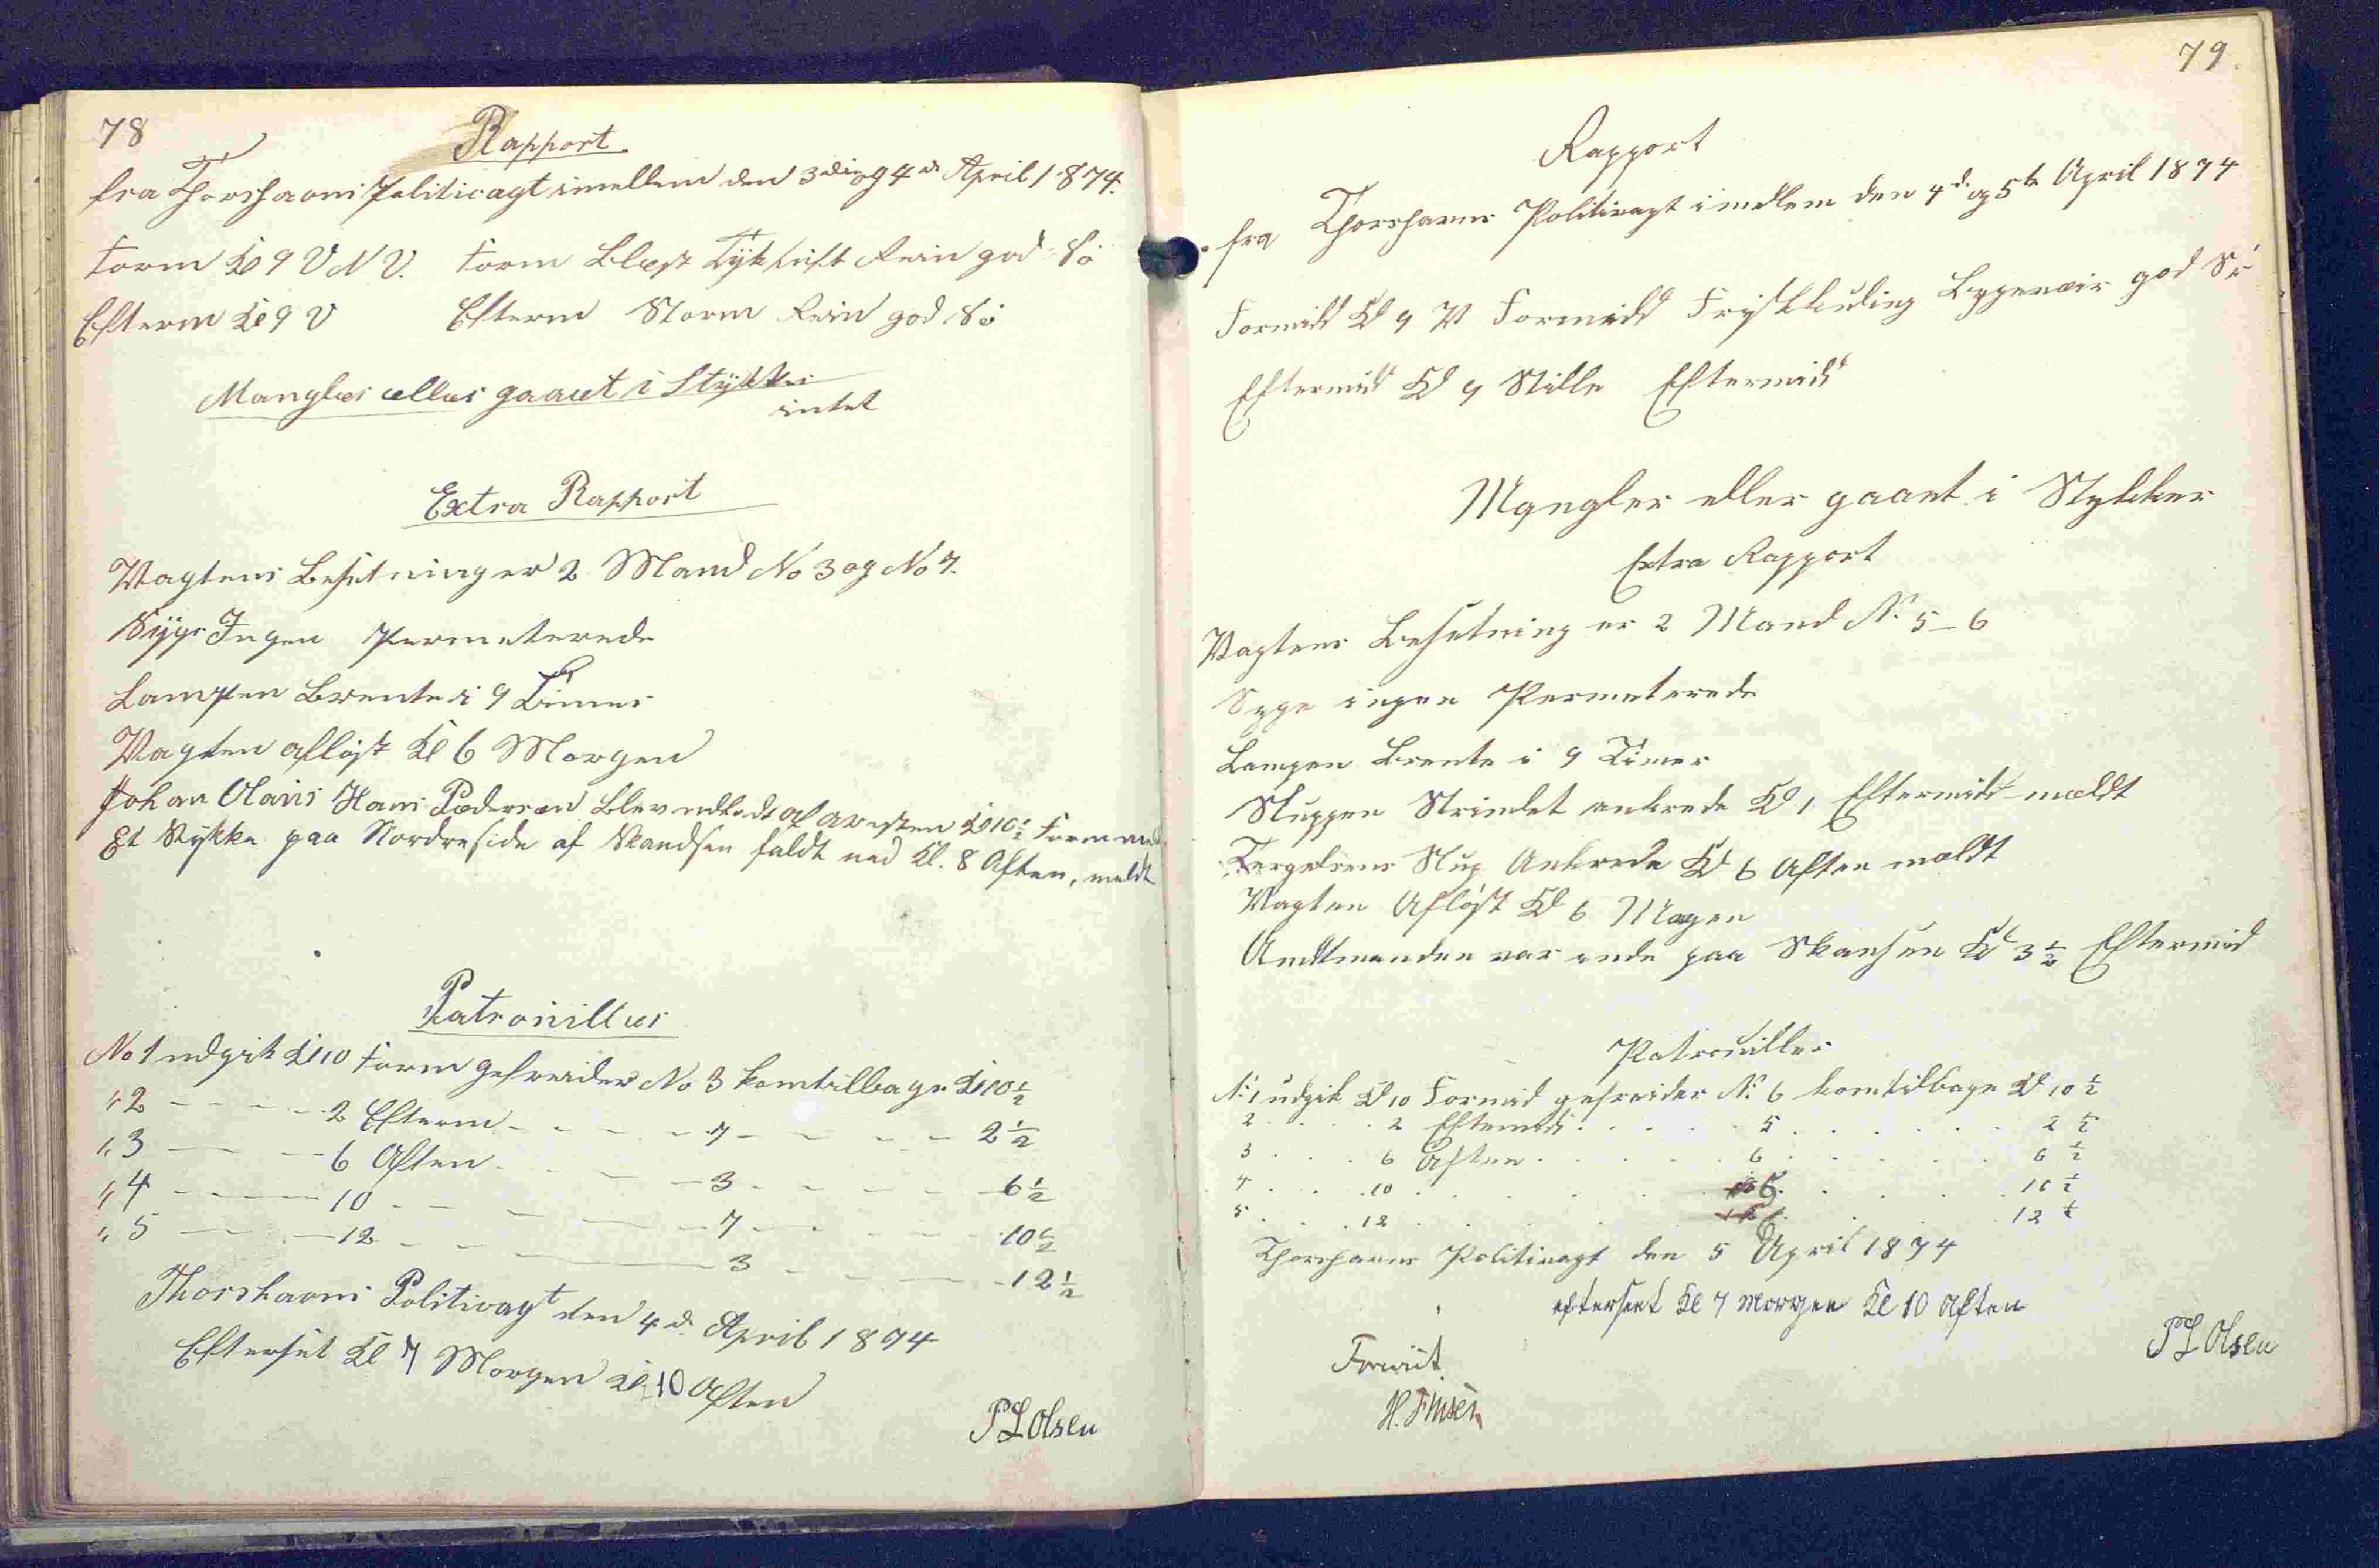 78
Rapport
fra Thorshavns Politivagt imellem den 3die og 4de April 1874.
Form Kl 9 V N V. Form Blæst Tyk luft Rein god Sö
Efterm Kl 9 V Efterm Storm Rein god Sö
Mangler eller gaaet i Stykker
intet
Extra Rapport
Vagtens Besetning er 2 Mand No 3 og No 7.
Syge Ingen Permeterede
Lampen Brente i 9 Timer
Vagten aflöst Kl 6 Morgen
Johan Claus Hans Pedersen blev udladt af aresten Kl 10½ Form
Et Stykke paa Nordreside af Skandsen faldt ned Kl. 8 Aften, meldt
Patrouiller
No 1 udgik Kl 10 Form gefreider No 3 kom tilbage Kl 10½
" 2 - - - - 2 Efterm - - - - 7 - - - - 2½
" 3 - - - 6 Aften - - - - 3 - - - - 6½
" 4 - - - 10 - - - - 7 - - - - 10½
" 5 - - - 12 - - - - 3 - - - - 12½
Thorshavns Politivagt den 4de April 1874
Efterset Kl 7 Morgen Kl 10 Aften
P L Olsen
79.
Rapport
fra Thorshavns Politivagt imellem den 4de og 5te April 1874
Formidd Kl 9 V Formidd Friskkuling Bygeveir god Sö
Eftermidd Kl 9 Stille Eftermidd
Mangler eller gaaet i Stykker
Extra Rapport
Vagtens Besetning er 2 Mand No 5 - 6
Syge ingen Permeterede
Lampen Brente i 9 Timer
Sluppen Strimlet ankrede Kl 1 Eftermidd meldt
Slup Ankrede Kl 6 Aften meldt
Vagten Aflöst Kl 6 Morgen
Amtmanden var inde paa Skansen Kl 3½ Eftermid
Patrouiller
No 1 udgik Kl 10 Formid gefreider No 6 kom tilbage Kl 10½
2 . . . . 2 Eftermid . . . . 5 . . . . 2½
3 . . . 6 Aften . . . . 6 . . . . 6½
4 . . . 10 . . . . 5 . . . . 10½
5 . . . 12 . . . . 6 . . . . 12½
Thorshavns Politivagt den 5 April 1874
efterseet Kl 7 Morgen Kl 10 Aften
P L Olsen
Foreviist.
H. Finsen